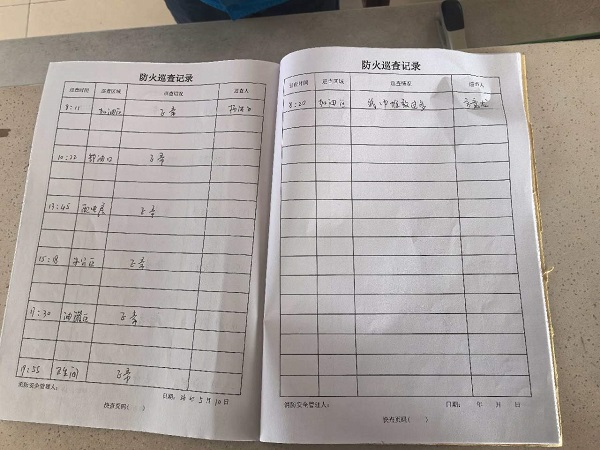 防火巡查记录
巡查时间 巡查区域 巡查情况 巡查人
8:15 加油区 正常
10:22 卸油口 正常
13:45 配电房 正常
15:18 正常
17:30 油罐区 正常
19:55 卫生间 正常
消防安全管理人: 日期: 年 5月10日
检查页码( )
防火巡查记录
巡查时间 巡查区域 巡查情况 巡查人
8:20 加油区
消防安全管理人: 日期: 年 月 日
检查页码( )